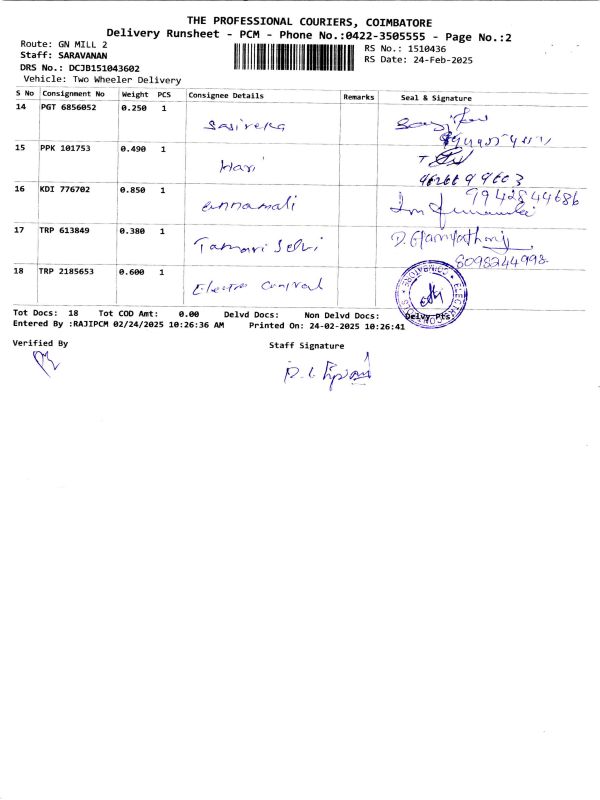 THE PROFESSIONAL COURIERS, COIMBATORE
Delivery Runsheet - PCM - Phone No.:0422-3505555 - Page No.:2
Route: GN MILL 2
RS No.: 1510436
Staff: SARAVANAN
RS Date: 24-Feb-2025
DRS No.: DCJB151043602
Vehicle: Two Wheeler Delivery
S No Consignment No Weight PCS Consignee Details Remarks Seal & Signature
14 PGT 6856052 0.250 1 Sasireka
15 PPK 101753 0.490 1 Hari
16 KDI 776702 0.850 1 annamali 9942844686
17 TRP 613849 0.380 1 Tamari Selvi
8098244998
18 TRP 2185653 0.600 1 Electro Control
Tot Docs: 18 Tot COD Amt: 0.00 Delvd Docs: Non Delvd Docs: Delvy Pts:
Entered By :RAJIPCM 02/24/2025 10:26:36 AM Printed On: 24-02-2025 10:26:41
Verified By
Staff Signature